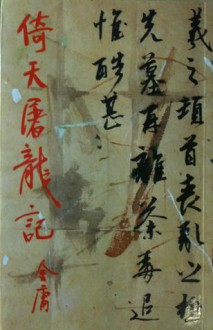 羲之頓首喪亂之極
先墓再離荼毒追
惟酷甚
倚天屠龍記
金庸